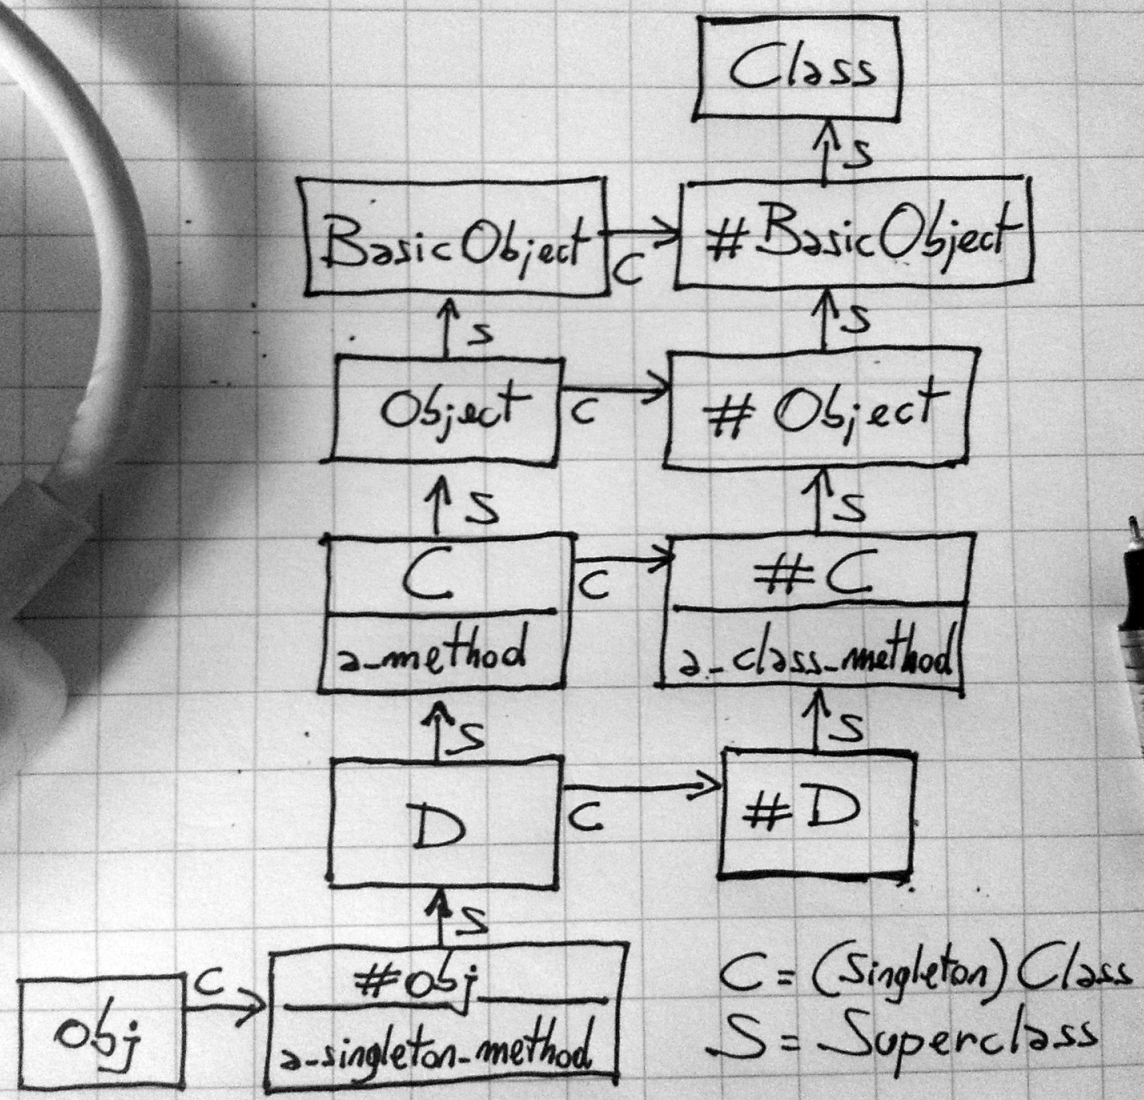 Class
S
BasicObject
C
#BasicObject
S
S
Object
C
# Object
S
S
C
C
#C
a_method
a_class_method
S
S
D
C
#D
S
obj
C
#obj
a_singleton_method
C = (Singleton) Class
S = Superclass